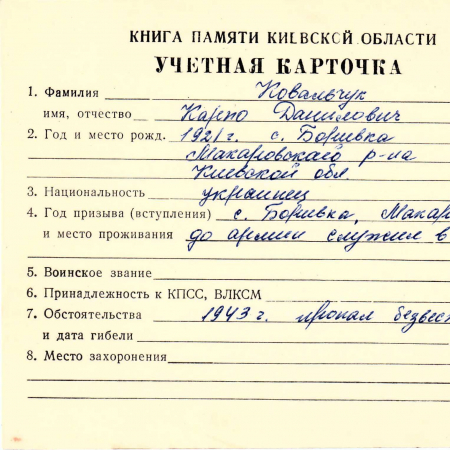 КНИГА ПАМЯТИ КИЕВСКОЙ ОБЛАСТИ
УЧЕТНАЯ КАРТОЧКА
1. Фамилия Ковальчук
имя, отчество Карпо Данилович
2. Год и место рожд. 1921 г. с. Боривка
Макаровского р-на
Киевской обл
3. Национальность украинец
4. Год призыва (вступления) с. Боривка, Макар
и место проживания до армии служил в
5. Воинское звание
6. Принадлежность к КПСС, ВЛКСМ
7. Обстоятельства 1943 г. пропал безвес
и дата гибели
8. Место захоронения